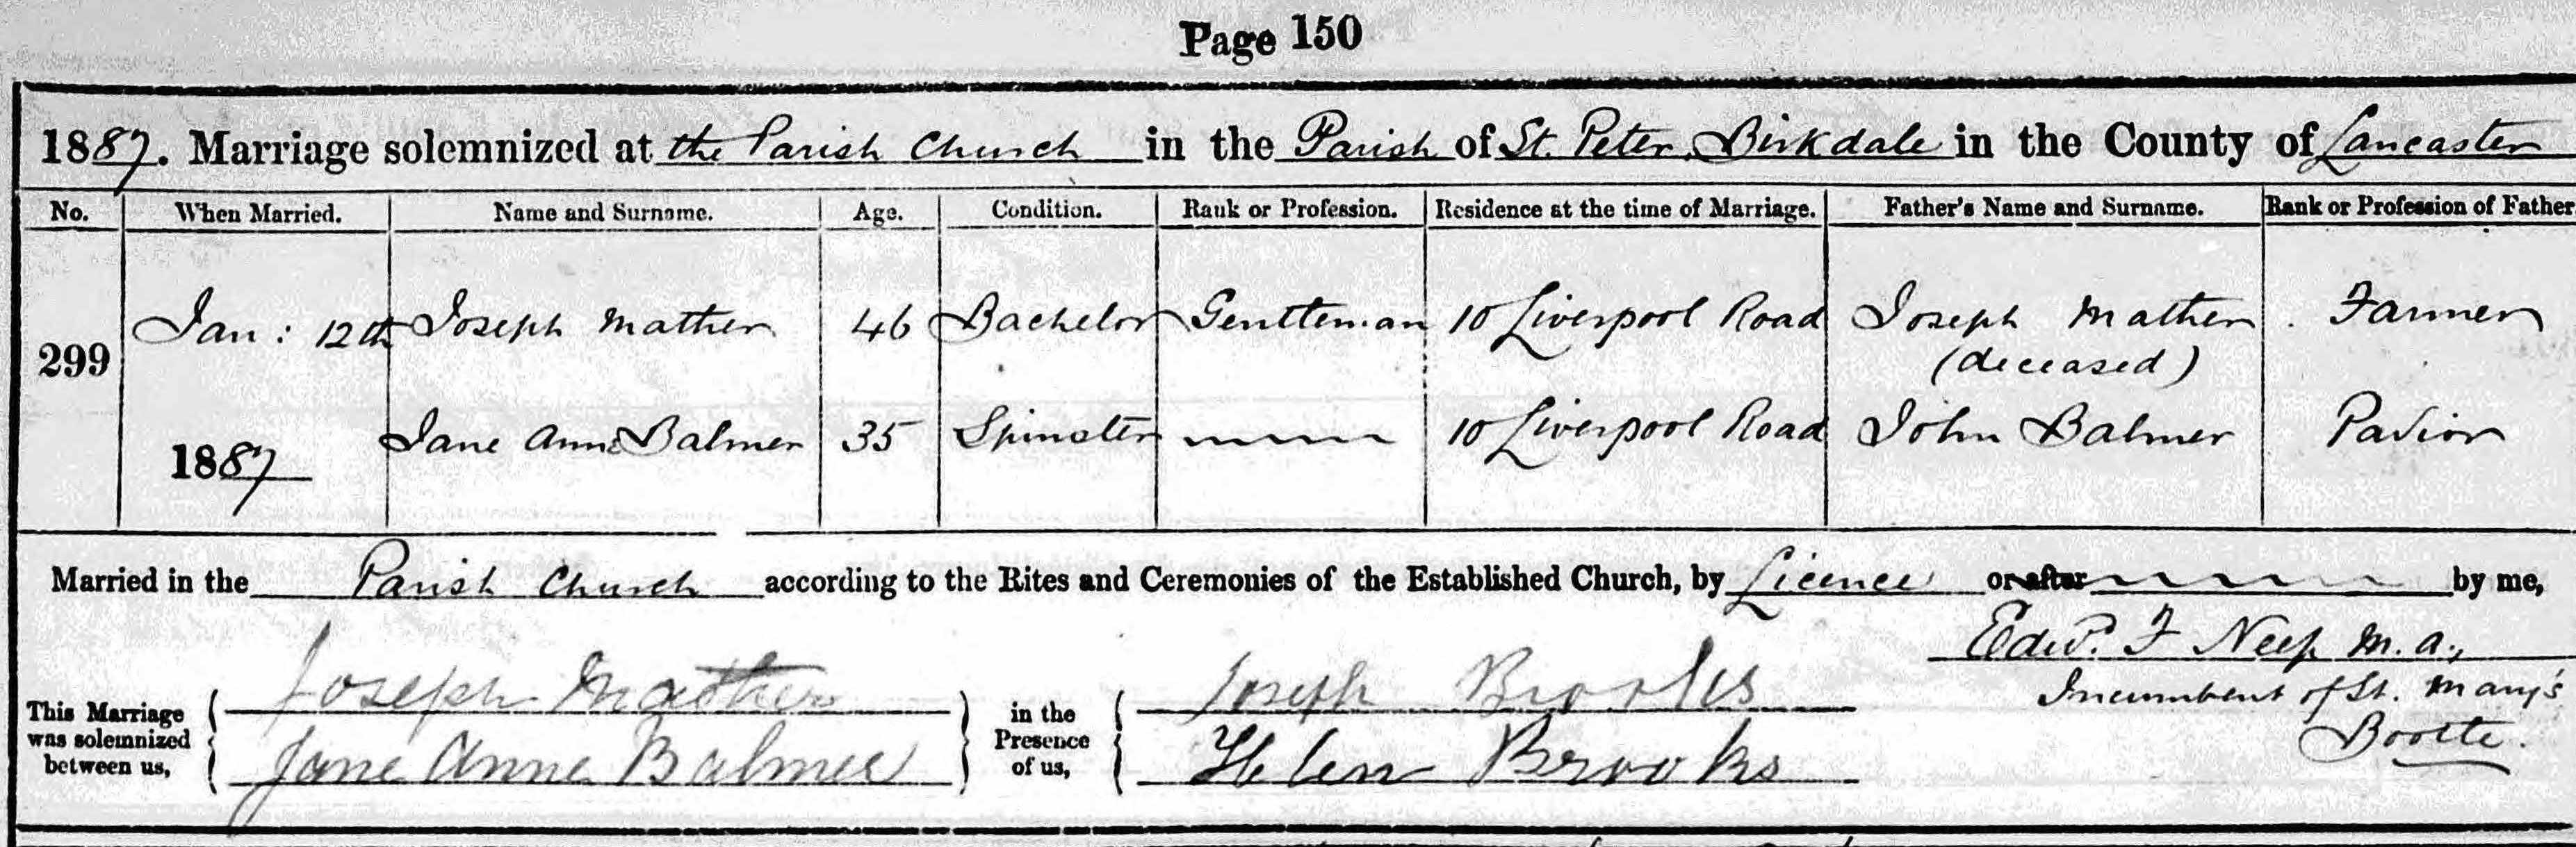 Page 150
1887. Marriage solemnized at the Parish Church in the Parish of St. Peter, Birkdale in the County of Lancaster
No. When Married. Name and Surname. Age. Condition. Rank or Profession. Residence at the time of Marriage. Father's Name and Surname. Rank or Profession of Father
299 Jan: 12th Joseph Mather 46 Bachelor Gentleman 10 Liverpool Road Joseph Mather Farmer
(deceased)
1887 Jane Anne Balmer 35 Spinster 10 Liverpool Road John Balmer Pavior
Married in the Parish Church according to the Rites and Ceremonies of the Established Church, by Licence or after by me,
Edwd. F Neep M.A.,
Incumbent of St. Mary's
Bootle.
This Marriage was solemnized between us,
Joseph Mather
Jane Anne Balmer
in the Presence of us,
Joseph Brooks
Helen Brooks